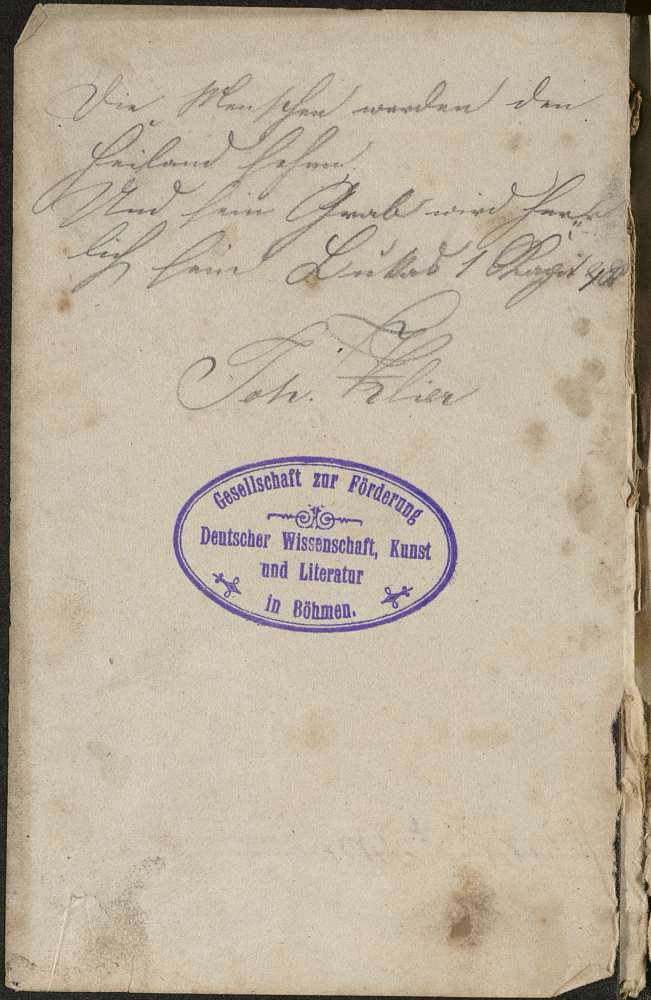 Die Menschen werden den
Heiland sehen.
Und sein Grab wird herr-
lich sein Lukas 1 Kapit
Joh. Klier
Gesellschaft zur Förderung
Deutscher Wissenschaft, Kunst
und Literatur
in Böhmen.